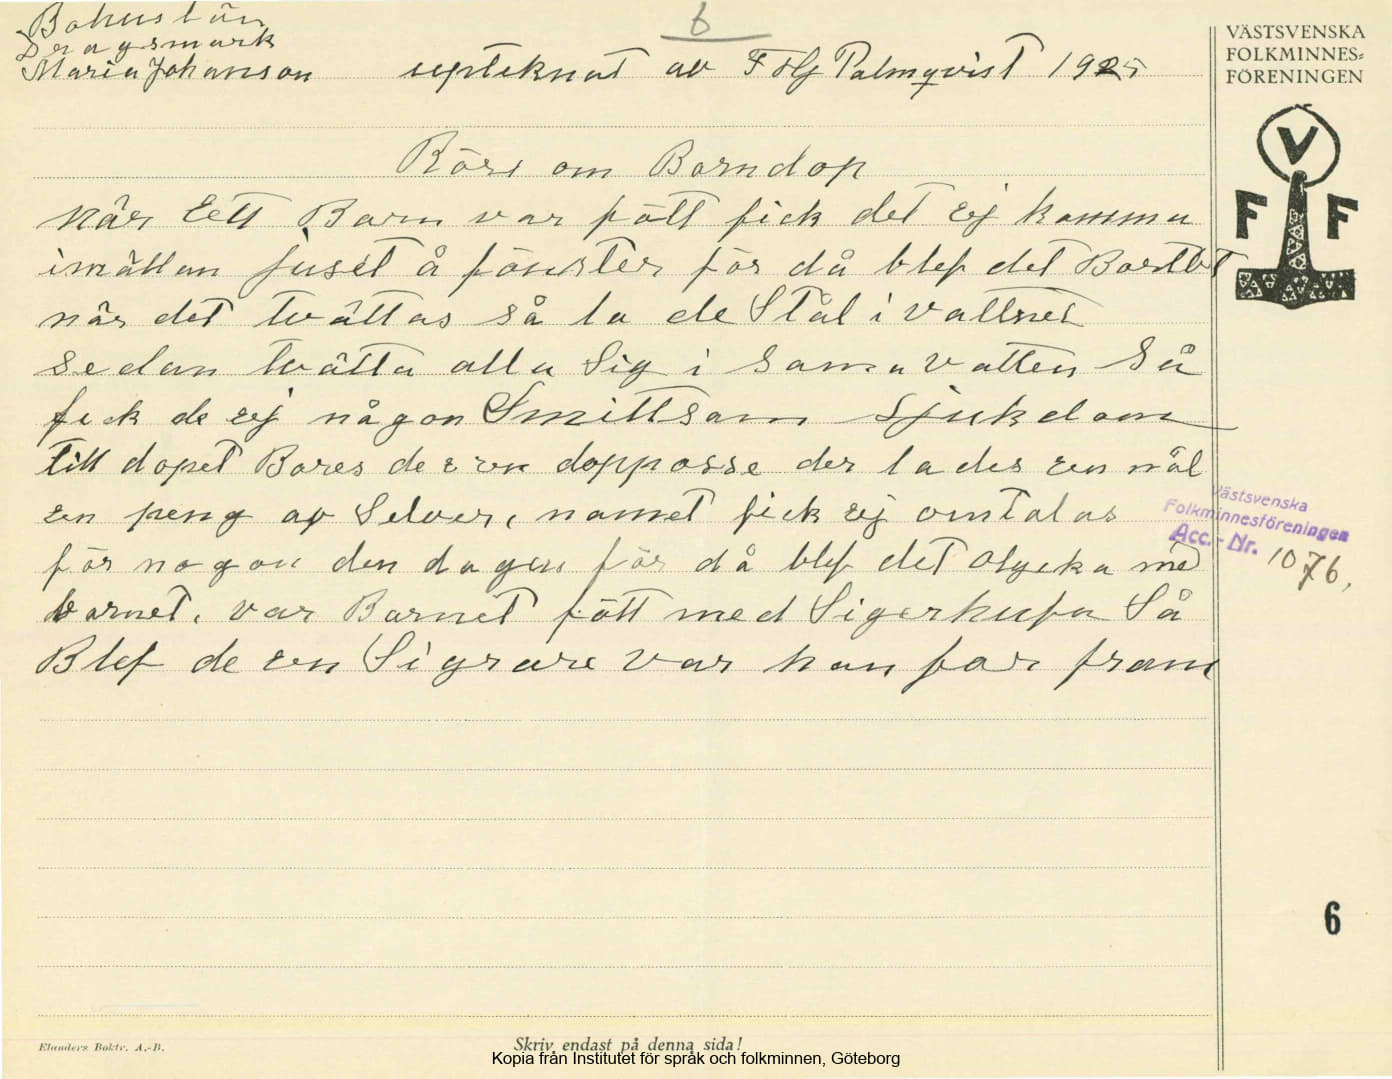 Bohuslän
Dragsmark
Maria Johanson
6
upteknat av F Hj Palmqvist 1925
VÄSTSVENSKA
FOLKMINNES-
FÖRENINGEN
V
F F
Rörs om Barndop
När Ett Barn var fött fick det ej komma
imällan juset å fönster för då blef det Bortbt
när det tvättas så la de Stål i vattnet
sedan tvätta alla Sig i sama vatten Så
fick de ej någon Smittsam Sjukdom
till dopet Bares de een dopposse der lades en nål
en peng af Selver, namnet fick ej omtalas
för nogon den dagen för då blef det olycka med
barnet. var Barnet fött med Sigerhufa Så
Blef de en Sigrare var han far fram
Västsvenska
Folkminnesföreningen
Acc.-Nr. 1076.
6
Elanders Boktr. A.-B.
Skriv endast på denna sida!
Kopia från Institutet för språk och folkminnen, Göteborg